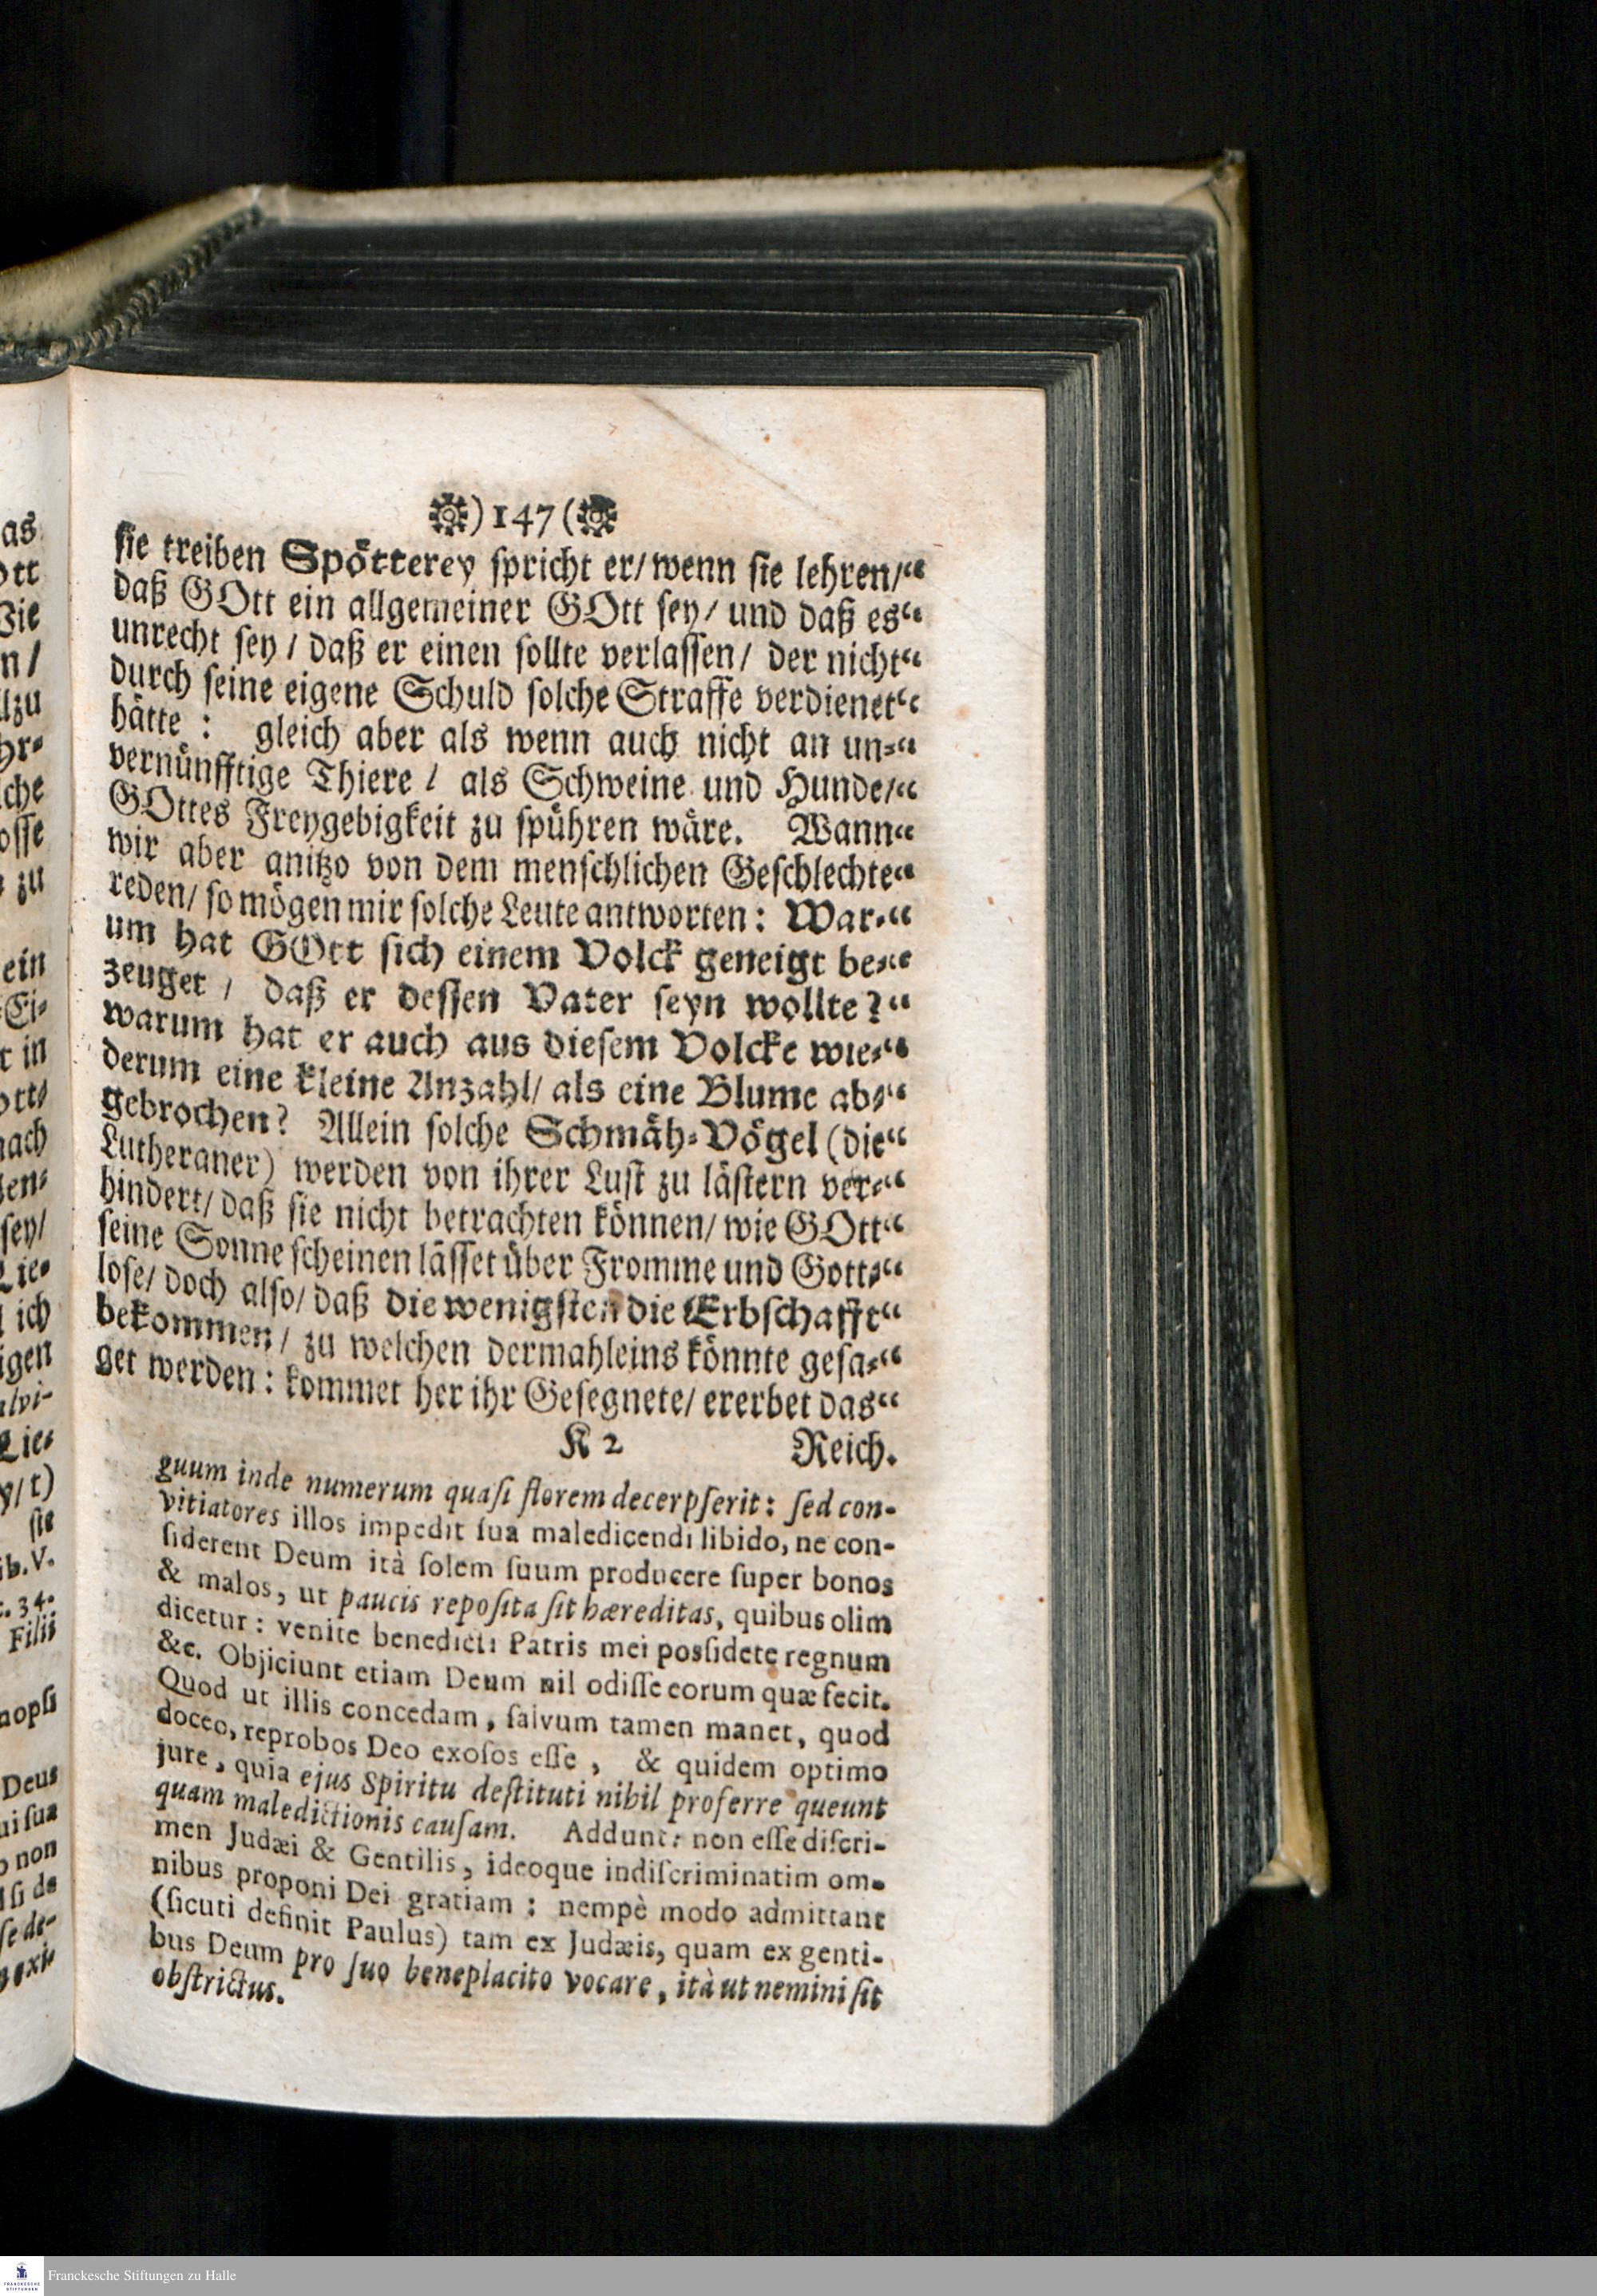 )147(
sie treiben Spötterey spricht er/ wenn sie lehren/“
daß GOtt ein allgemeiner GOtt sey/ und daß es“
unrecht sey / daß er einen sollte verlassen/ der nicht“
durch seine eigene Schuld solche Straffe verdienet“
hätte : gleich aber als wenn auch nicht an un-“
vernünfftige Thiere / als Schweine und Hunde/“
GOttes Freygebigkeit zu spühren wäre. Wann“
wir aber anitzo von dem menschlichen Geschlechte“
reden/ so mögen mir solche Leute antworten: War-“
um hat GOtt sich einem Volck geneigt be-“
zeuget / daß er dessen Vater seyn wollte?“
warum hat er auch aus diesem Volcke wie-“
derum eine kleine Anzahl/ als eine Blume ab-“
gebrochen? Allein solche Schmäh-Vögel (die“
Lutheraner) werden von ihrer Lust zu lästern ver-“
hindert/ daß sie nicht betrachten können/ wie GOtt“
seine Sonne scheinen lässet über Fromme und Gott-“
lose/ doch also/ daß die wenigsten die Erbschafft“
bekommen/ zu welchen dermahleins könnte gesa-“
get werden: kommet her ihr Gesegnete/ ererbet das“
K 2 Reich.
guum inde numerum quaſi florem decerpſerit: ſed con-
vitiatores illos impedit ſua maledicendi libido, ne con-
ſiderent Deum ità ſolem ſuum producere ſuper bonos
& malos, ut paucis repoſita ſit hæreditas, quibus olim
dicetur: venite benedicti Patris mei posſidete regnum
&c. Objiciunt etiam Deum nil odiſſe eorum quæ fecit.
Quod ut illis concedam, ſalvum tamen manet, quod
doceo, reprobos Deo exoſos eſſe, & quidem optimo
jure, quia ejus Spiritu deſtituti nihil proferre queunt
quam maledictionis cauſam. Addunt: non eſſe diſcri-
men Judæi & Gentilis, ideoque indiſcriminatim om-
nibus proponi Dei gratiam: nempè modo admittant
(ſicuti definit Paulus) tam ex Judæis, quam ex genti-
bus Deum pro ſuo beneplacito vocare, ità ut nemini ſit
obſtrictus.
Franckesche Stiftungen zu Halle